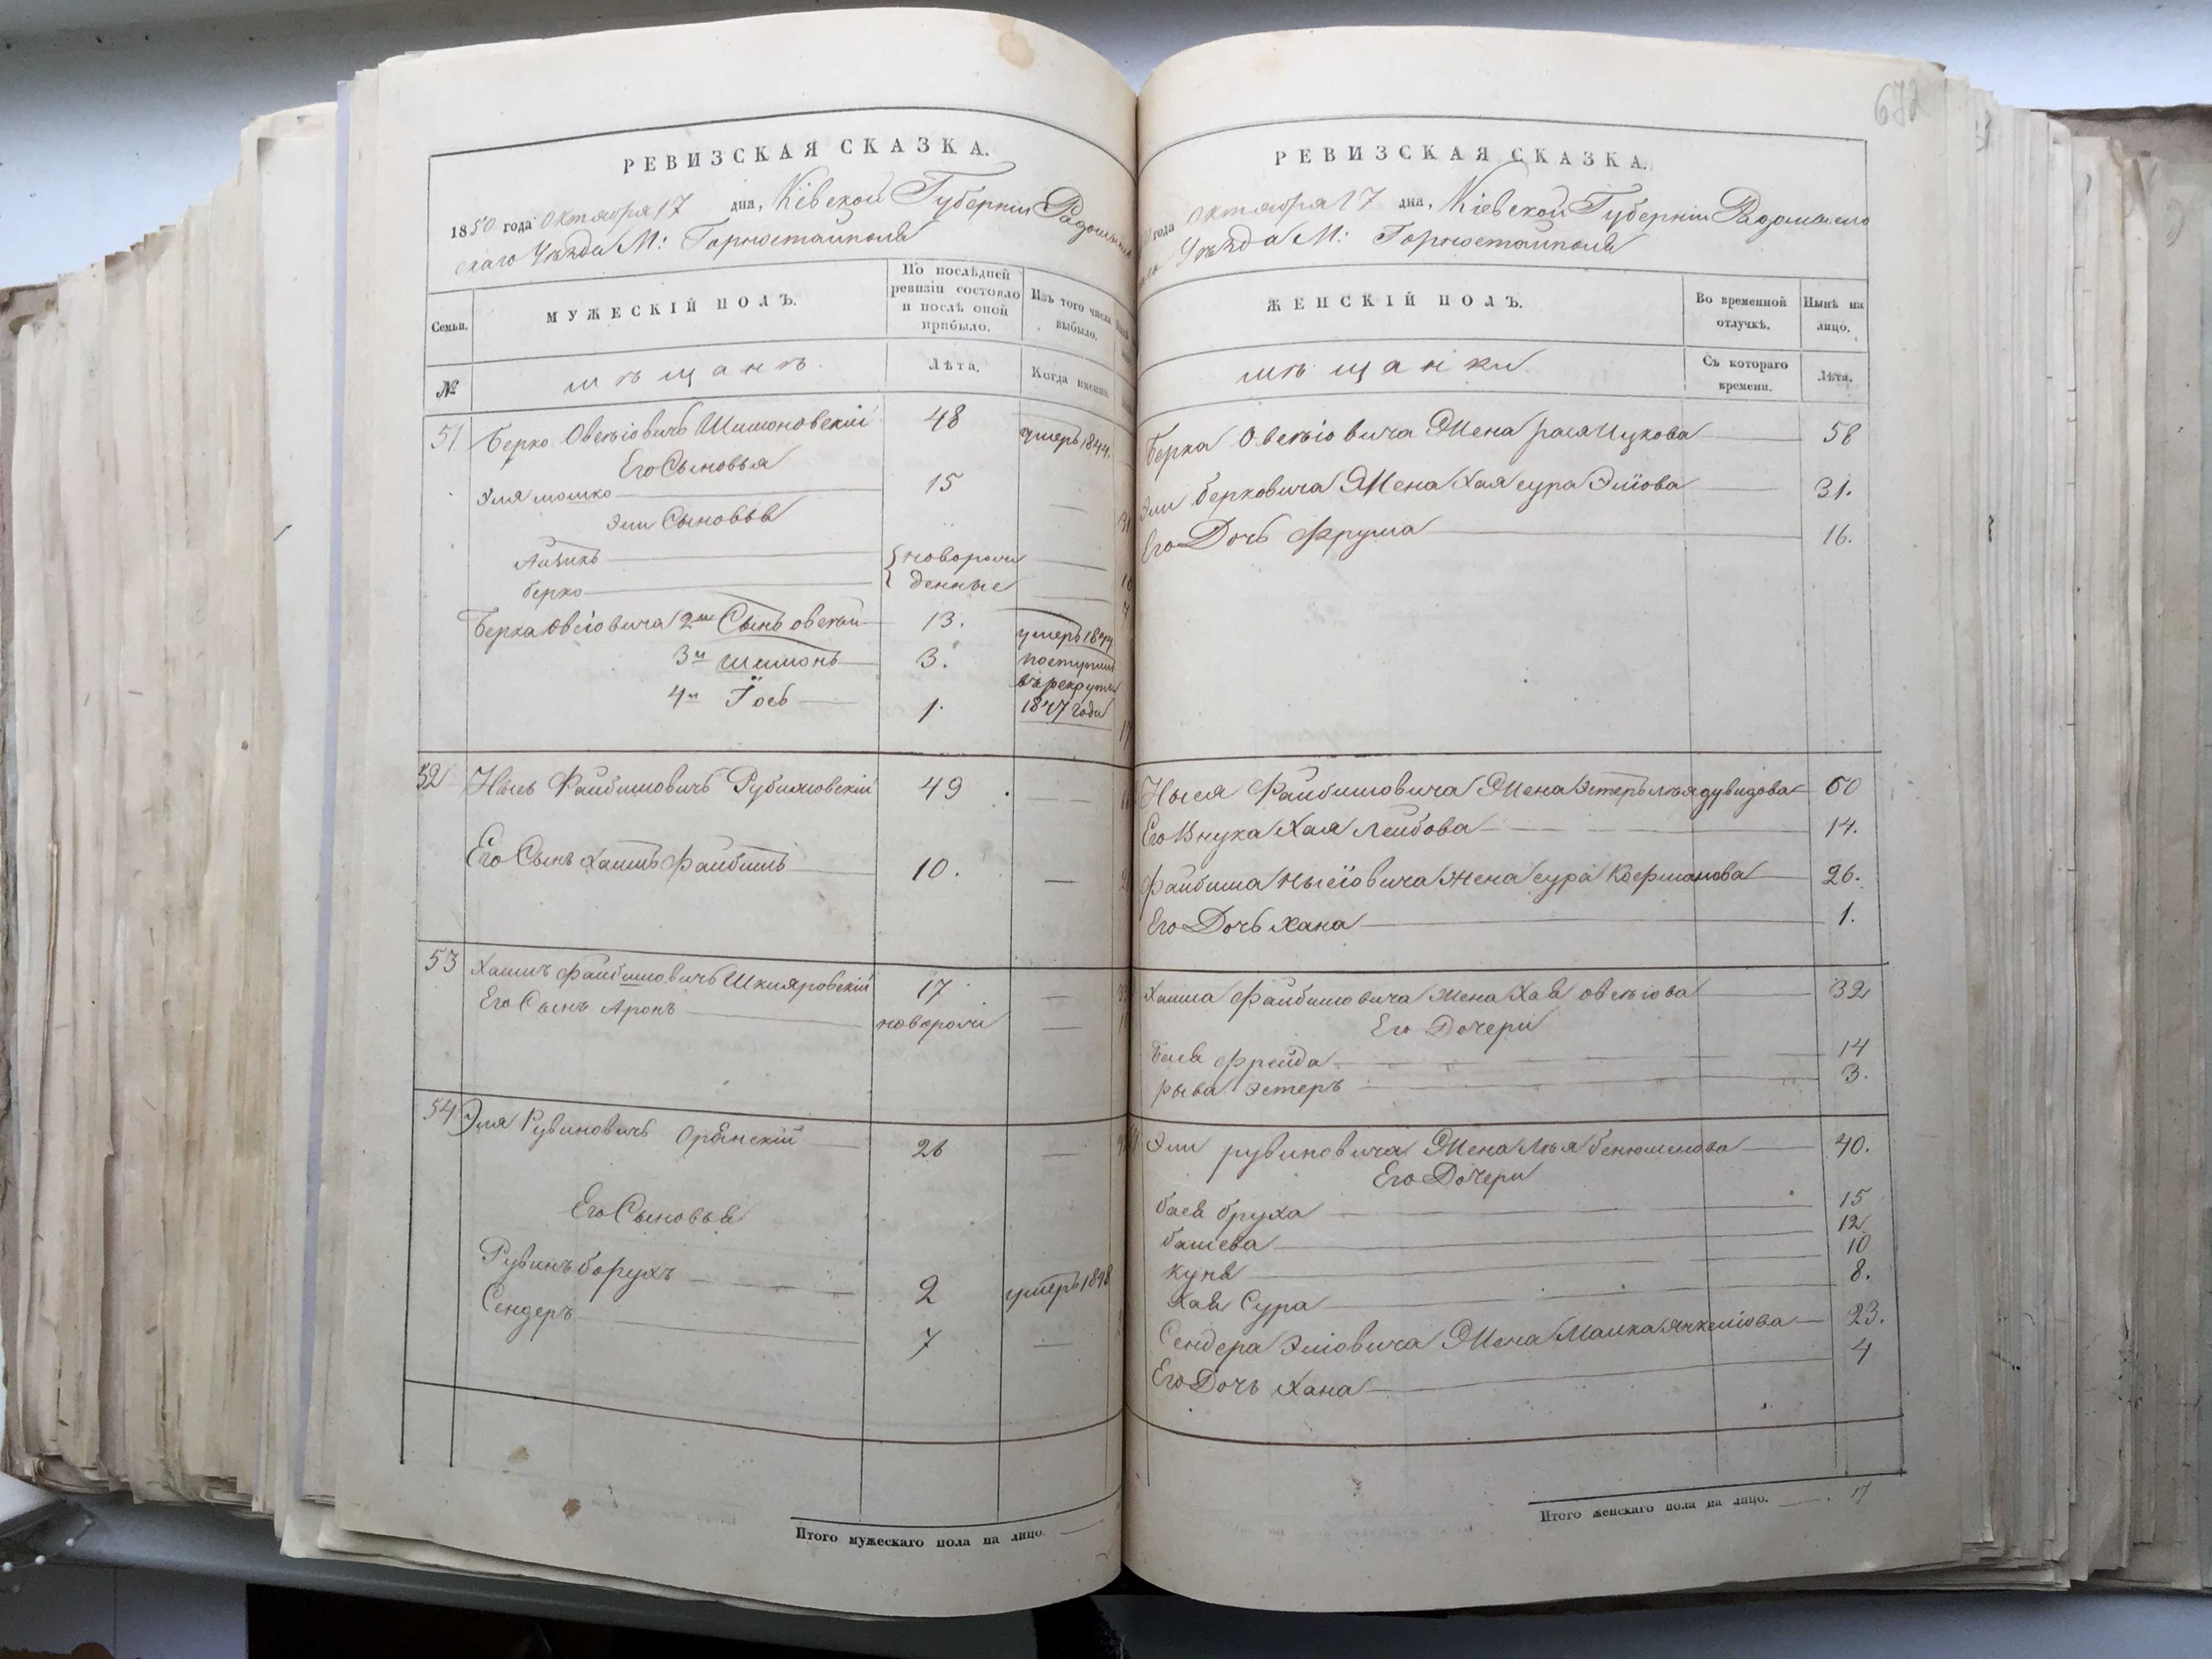 РЕВИЗСКАЯ СКАЗКА.
1850 года Октября 17 дня, Кіевской Губерніи Радомысль
скаго Уѣзда М: Горностайполя
Семьи.
МУЖЕСКІЙ ПОЛЪ.
По послѣдней ревизіи состояло и послѣ оной прибыло.
Изъ того числа выбыло.
№
мѣщанъ.
Лѣта.
Когда именно.
51 Берко Овсѣіовичъ Шимоновскій 48 умеръ 1844.
Его Сыновья
Эля мошко 15
Эли Сыновья
Айзикъ новорож
берко денные
Берка Овсіовича 2й Сынъ овсѣй 13. умеръ 1844
3й шимонъ 3. поступилъ
въ рекруты
4й Іось 1. 1847 года
52 Нысь Файбишовичъ 49
Его Сынъ хаимъ Файбишъ 10.
53 Хаимъ Файбишовичъ Шкляровскій 17
Его Сынъ Аронъ новорож
54 Эля Рувиновичъ 26
Его Сыновья
Рувинъ борухъ 2 умеръ 1848
Сендеръ 7
Итого мужескаго пола на лицо.
672
РЕВИЗСКАЯ СКАЗКА.
года Октября 17 дня, Кіевской Губерніи Радомысль
Уѣзда М: Горностайполя
ЖЕНСКІЙ ПОЛЪ.
Во временной отлучкѣ.
Нынѣ на лицо.
мѣщанки
Съ котораго времени.
Лѣта.
Берка Овсѣіовича Жена рася Ицкова 58
Эли берковича Жена Хая сура Эліова 31.
Его Дочь Фрума 16.
Нысея Файбишовича Жена Эстеръ лѣя дувидова 50
Его Внука Хая Лейбова 14.
Файбиша Нысіовича жена сура Кофманова 26.
Его Дочь хана 1.
Хаима Файбишовича жена Хая овсѣіова 32
Его Дочери
Бася Фрейда 14
рыва эстеръ 3.
Эли рувиновича Жена Лѣя 40.
Его Дочери
бася бруха 15
башева 12
куня 10
Хая Сура 8.
Сендера Эліовича Жена Малка 23.
Его Дочь Хана 4
Итого женскаго пола на лицо. 17